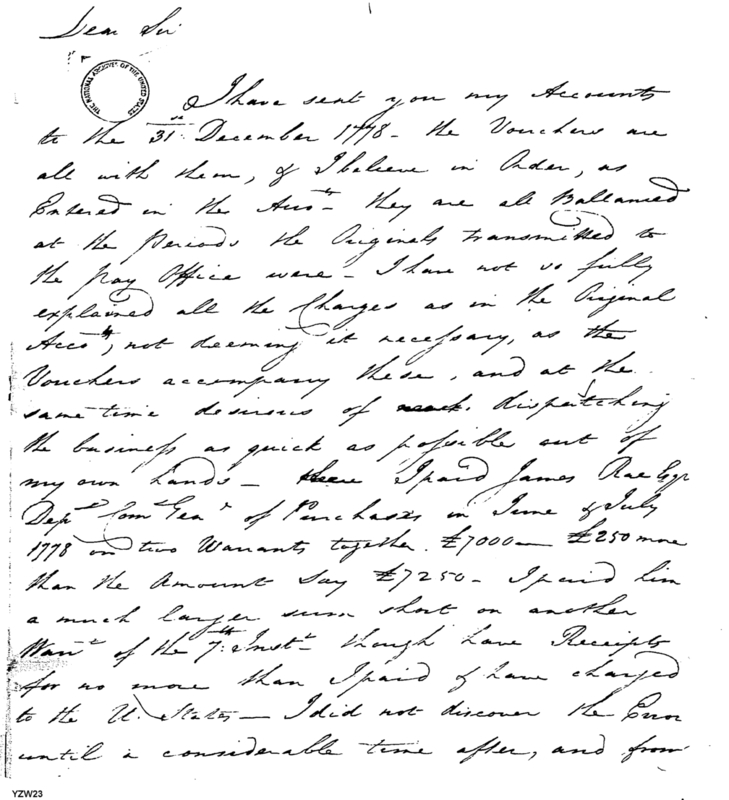 Dear Sir
THE NATIONAL ARCHIVES OF THE UNITED STATES
I have sent you my Accounts
to the 31st December 1778 - the Vouchers are
all with them, & I beleive in Order, as
Entered in the Accots - they are all Ballanced
at the Periods the Originals transmitted to
the Pay Office were - I have not so fully
explained all the Charges as in the Original
Accots, not deeming it necessary, as the
Vouchers accompany these, and at the
same time desirous of dispatching
the business as quick as possible out of
my own hands - I paid James Rae Esqr
Depy Comy Genl of Purchases in June & July
1778 on two Warrants together £7000 - £250 more
than the Amount Say £7250 - I paid him
a much larger sum short on another
Warrt of the 7th: Inst - though have Receipts
for no more than I paid & have charged
to the U. States - I did not discover the Error
until a considerable time after, and from
YZW23